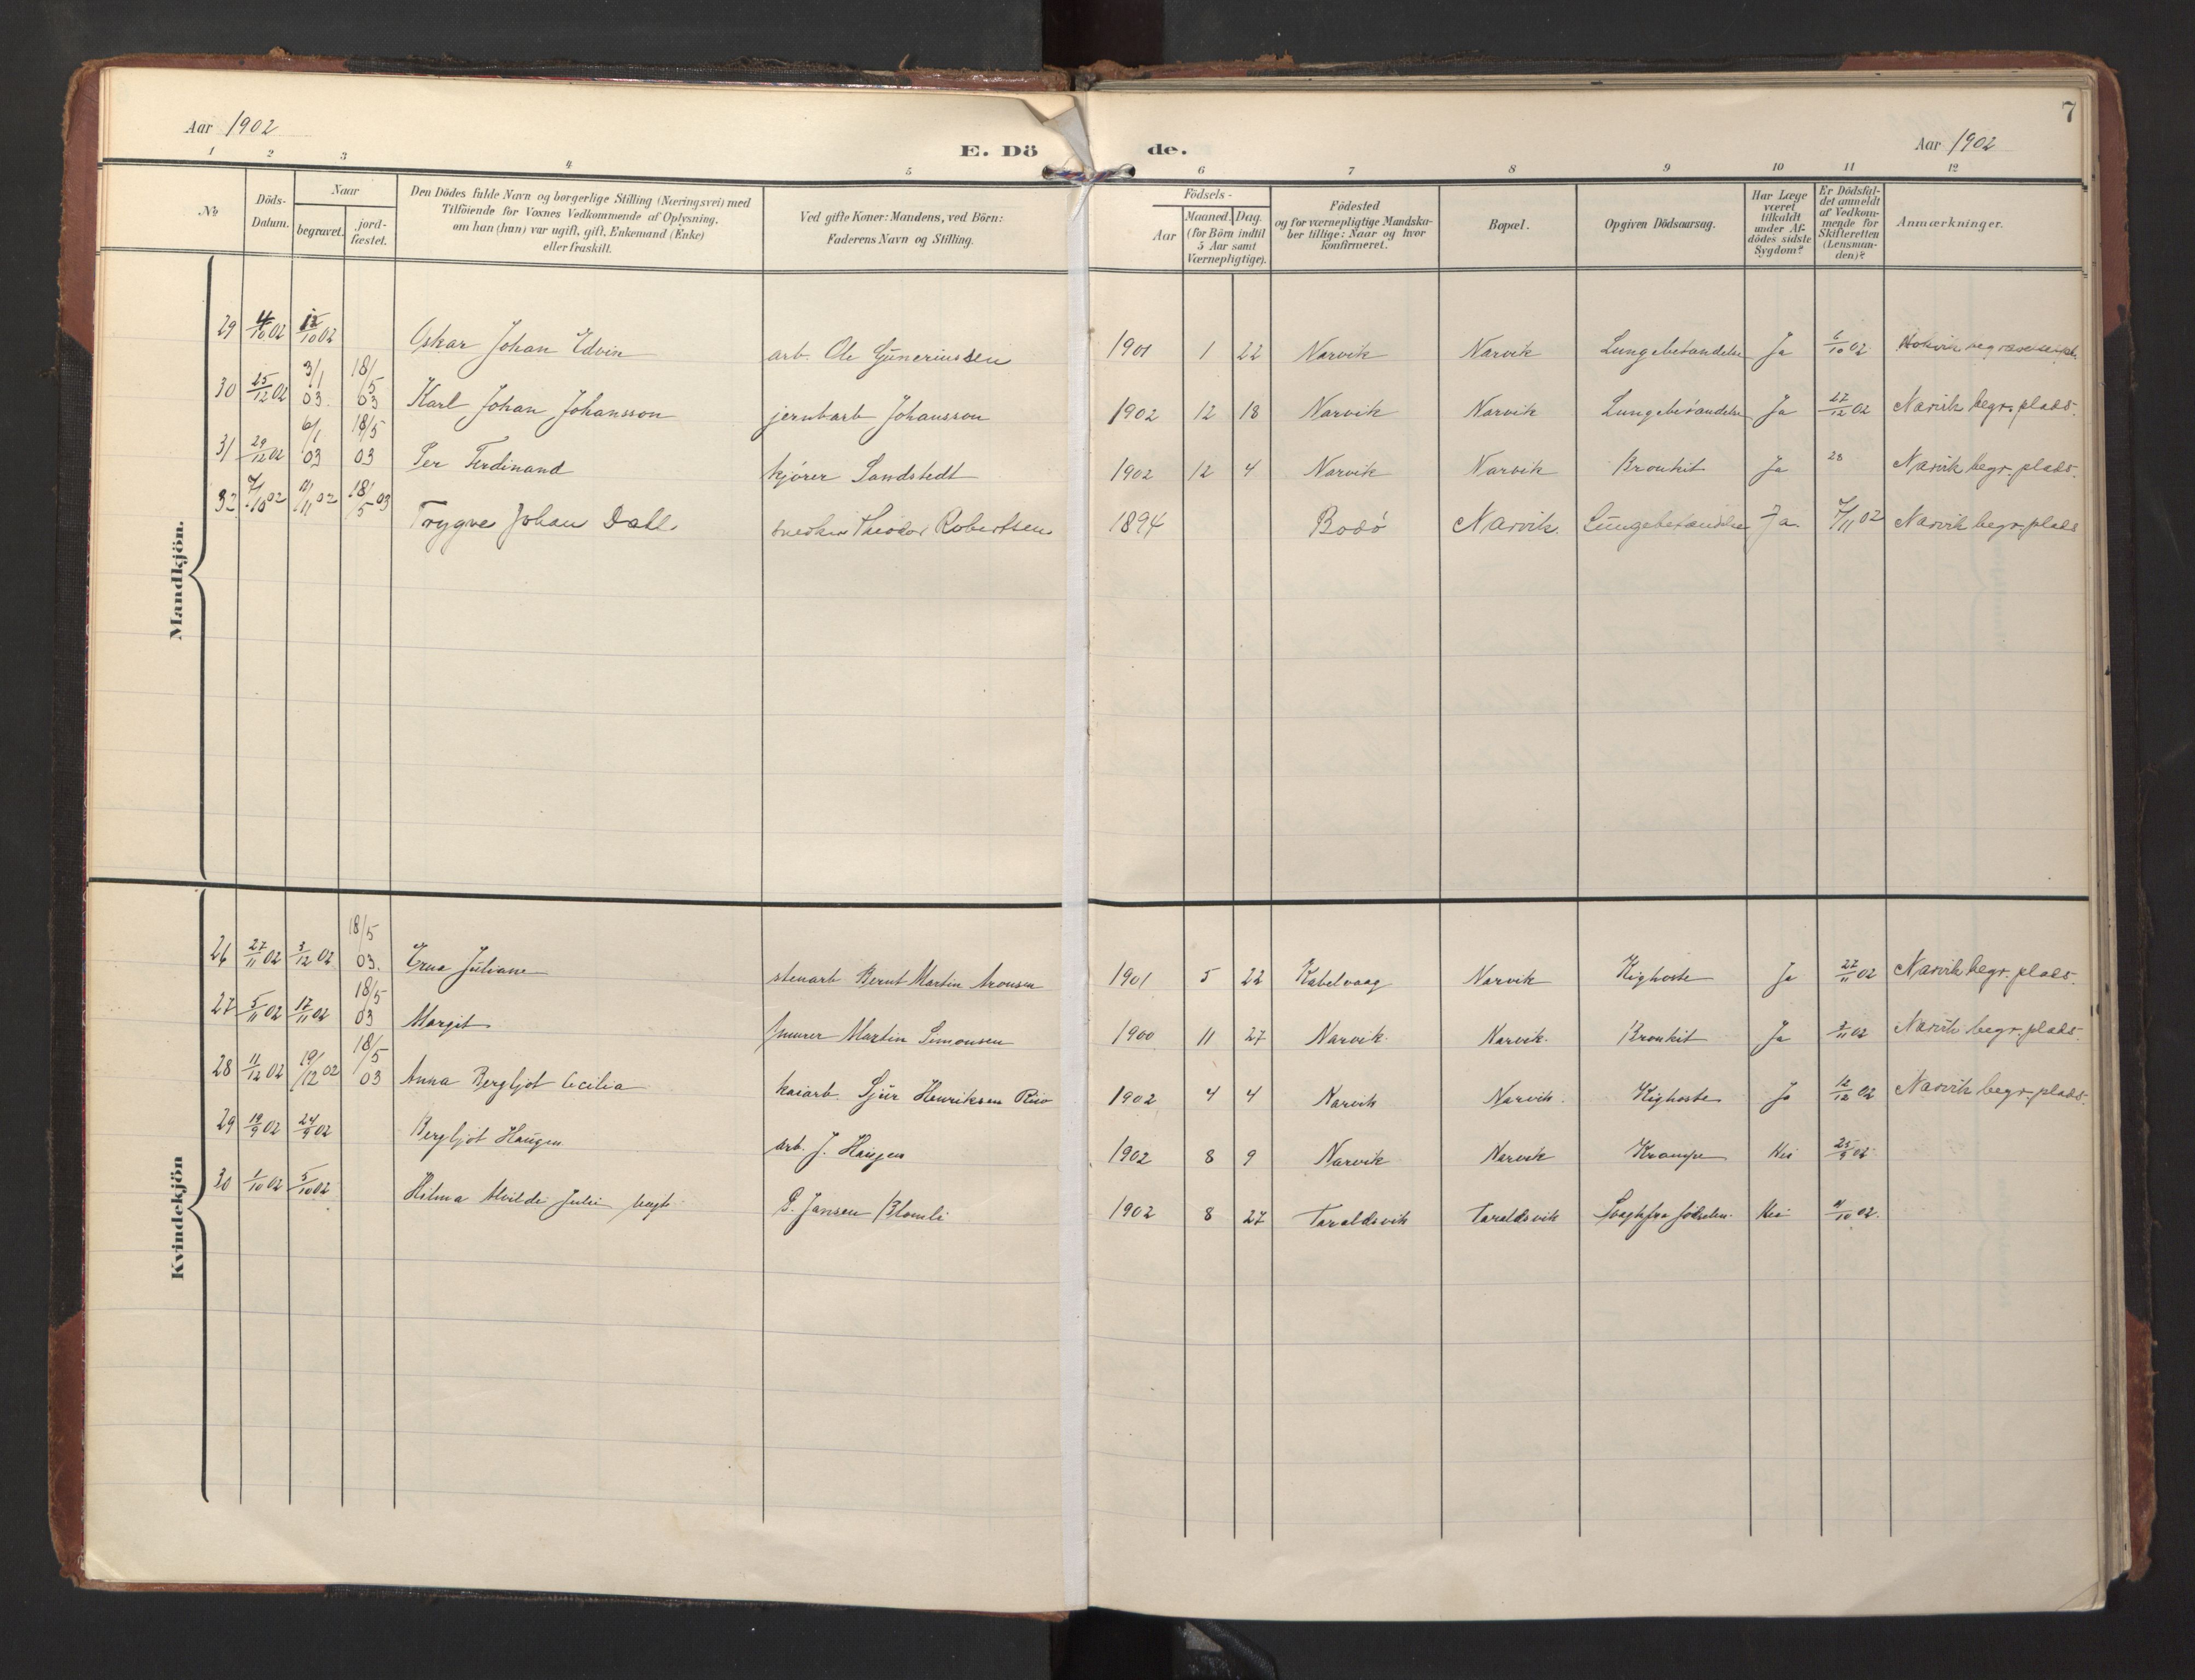 7
Aar 1902
E. Dö de.
Aar 1902
1 2 3 4 5 6 7 8 9 10 11 12
No
Döds-Datum.
Naar
begravet.
jord-fæstet.
Den Dödes fulde Navn og borgerlige Stilling (Næringsvei) med
Tilföiende for Voxnes Vedkommende af Oplysning,
om han (hun) var ugift, gift, Enkemand (Enke)
eller fraskilt.
Ved gifte Koner: Mandens, ved Börn:
Faderens Navn og Stilling.
Födsels-
Aar
Maaned. Dag.
(for Börn indtil
5 Aar samt
Værnepligtige).
Födested
og for værnepligtige Mandska-
ber tillige: Naar og hvor
konfirmeret.
Bopæl.
Opgiven Dödsaarsag.
Har Læge
været
tilkaldt
under Af-
dödes sidste
Sygdom?
Er Dödsfal-
det anmeldt
af Vedkom-
mende for
Skifteretten
(Lensman-
den)?
Anmærkninger.
Mandkjön.
29 4/10 02 12/10 02 Oskar Johan Edvin arb. Ole Guneriussen 1901 1 22 Narvik Narvik Lungebetændelse Ja 6/10 02
30 25/12 02 3/1 03 18/5 03 Karl Johan Johansson jernbarb Johansson 1902 12 18 Narvik Narvik Lungebetændelse Ja 27/12 02 Narvik begr. plads.
31 29/12 02 6/1 03 18/5 03 Per Ferdinand kjörer Sandstedt 1902 12 4 Narvik Narvik Bronkit Ja 28 Narvik begr. plads.
32 7/10 02 11/11 02 18/5 03 Trygve Johan Dahl snedker Theodor Robertsen 1894 Bodö Narvik. Lungebetændelse Ja. 7/11 02 Narvik begr. plads
Kvindekjön
26 27/11 02 3/12 02 18/5 03. Erna Juliane stenarb Bernt Martin Aronsen 1901 5 22 Kabelvaag Narvik Kighoste Ja 27/11 02 Narvik begr. plads.
27 5/11 02 17/11 02 18/5 03 Margit murer Martin Simonsen 1900 11 27 Narvik Narvik. Bronkit Ja /11 02 Narvik begr. plads.
28 11/12 02 19/12 02 18/5 03 Anna Bergljot Cecilia kaiarb. Sjur Henriksen 1902 4 4 Narvik Narvik. Kighoste Ja 12/12 02 Narvik begr. plads.
29 19/9 02 24/9 02 Bergljot Haugen arb. J. Haugen 1902 8 9 Narvik Narvik Krampe Nei 25/9 02
30 1/10 02 5/10 02 Hilma Alvilde Julie P. Jansen Blomli 1902 8 27 Taraldsvik Taraldsvik Svagh. fra födselen. Nei /10 02.